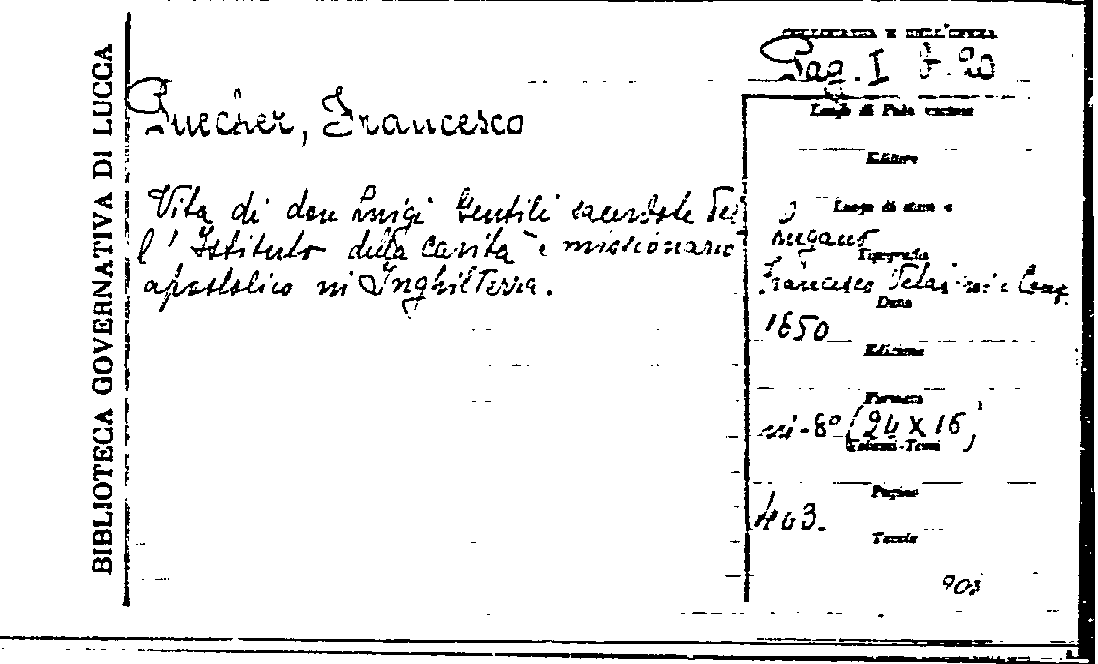 BIBLIOTECA GOVERNATIVA DI LUCCA
COLLOCAZIONE DELL'OPERA
Pag. I F. 20
Puecher, Francesco
Vita di don Luigi Gentili sacerdote del
l'Istituto della carità e missionario
apostolico in Inghilterra.
Luogo di Pubblicazione
Editore
Luogo di stampa
Lugano
Tipografia
Francesco Veladini e Comp.
Data
1850
Edizione
Formato
in-8° (24 X 16)
Volumi-Tomi
Pagine
403.
Tavole